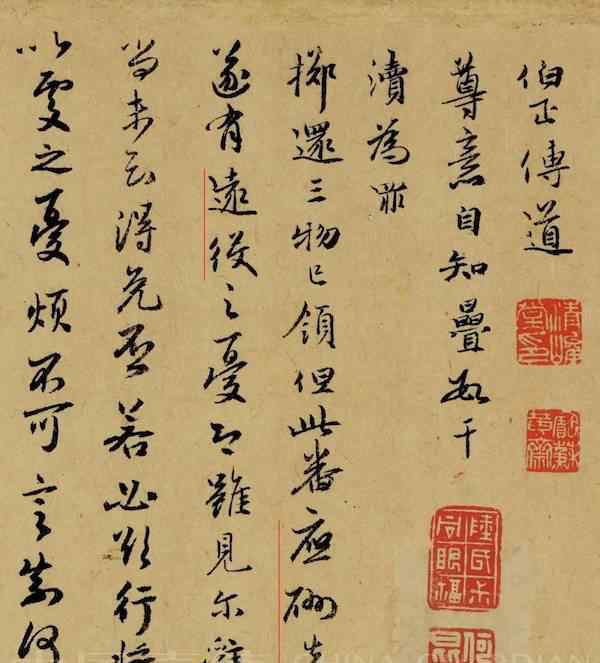 伯正傳道
尊意自知疊數干
瀆為罪
擲還三物已領但此番應酬
遂有遠役之憂 雖見尔
當未 得免否若必欲行
以雯之憂煩不可言
CHINA GUARDIAN